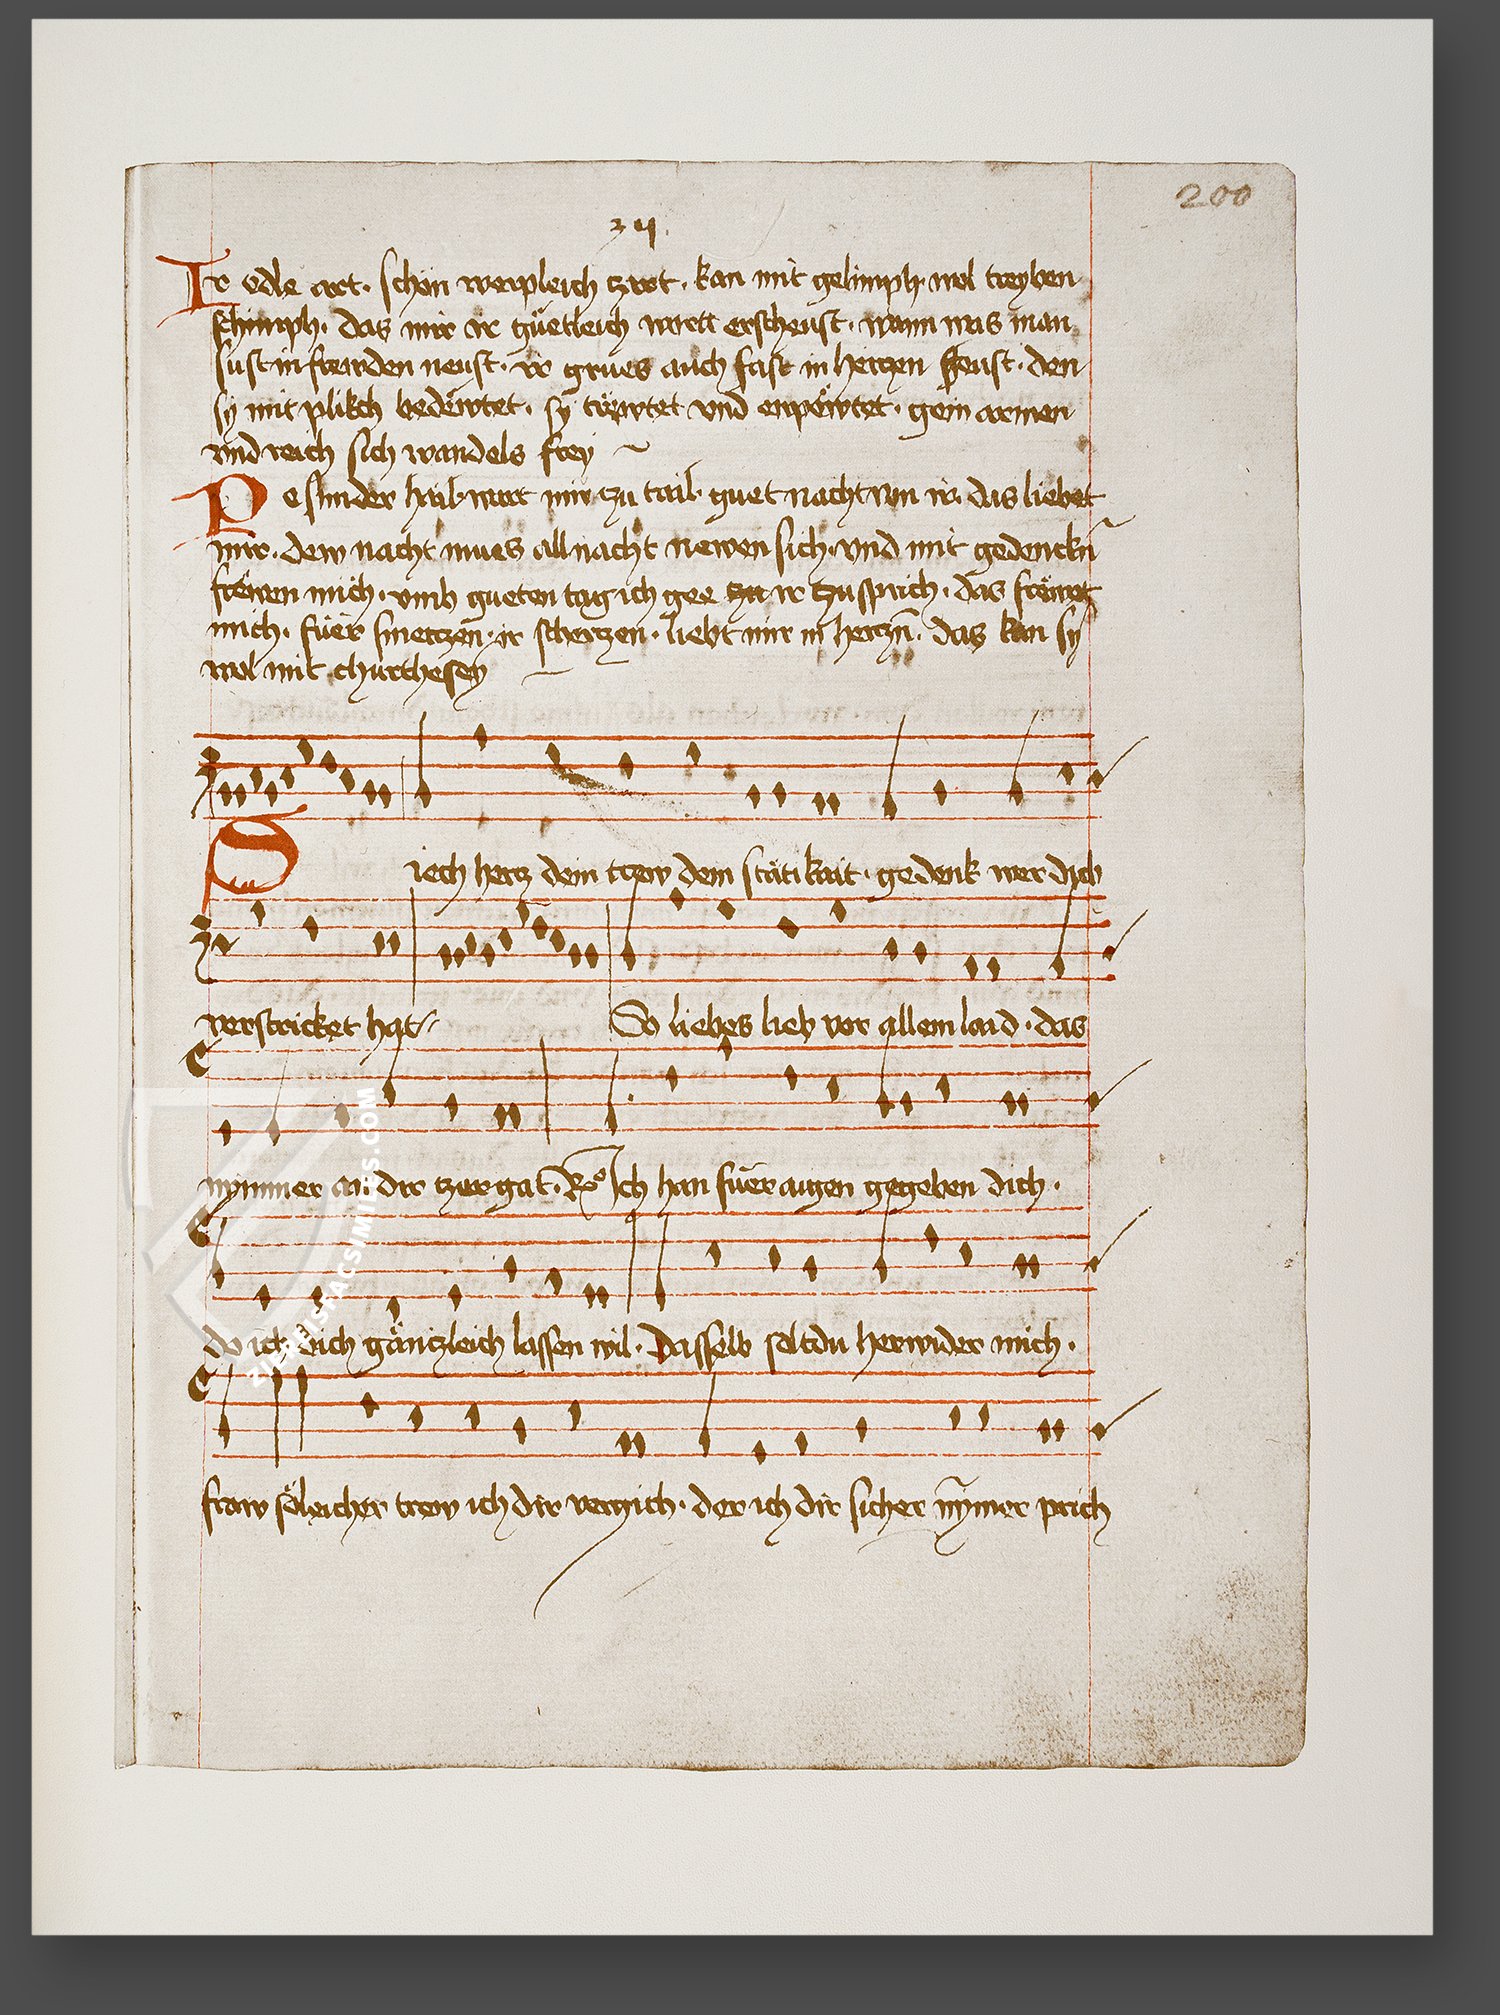 200
Ir edle art. schön weipleich zart. kan mit gelimph wol treyben
schimph. das mir ir güetleich wortt erscheust. wann was man
sust in frewden neust. ir grues auch fast in hertzen fleust. den
sy mit plikch bedëwtet. sy trëwtet vnd enpëwtet. gein armen
vnd reich sich wandels frey
Pe sunder hail wart mir zu tail guet nacht von ir. das liebet
mir. dew nacht mues all nacht newen sich. vnd mit gedenckn
frëwen mich. vmb gueten tag ich gee zu ir zu sprich. das frëwet
mich. füer smertzen. ir schertzen. liebt mir in hertzn. das kan sy
wol mit churthesey
Siech hertz dein trew dein stäti kait. gedenk wer dich
verstricket hat
So liebes lieb vor allem laid. das
nymmer an dir tzergat. Ich han füer aigen gegeben dich.
do ich dich gäntzleich lassen wil. dasselb soltdu herwider mich.
fraw söleicher trew ich dir vergich. der ich dir sicher nymer prich
ZIEREISFACSIMILES.COM